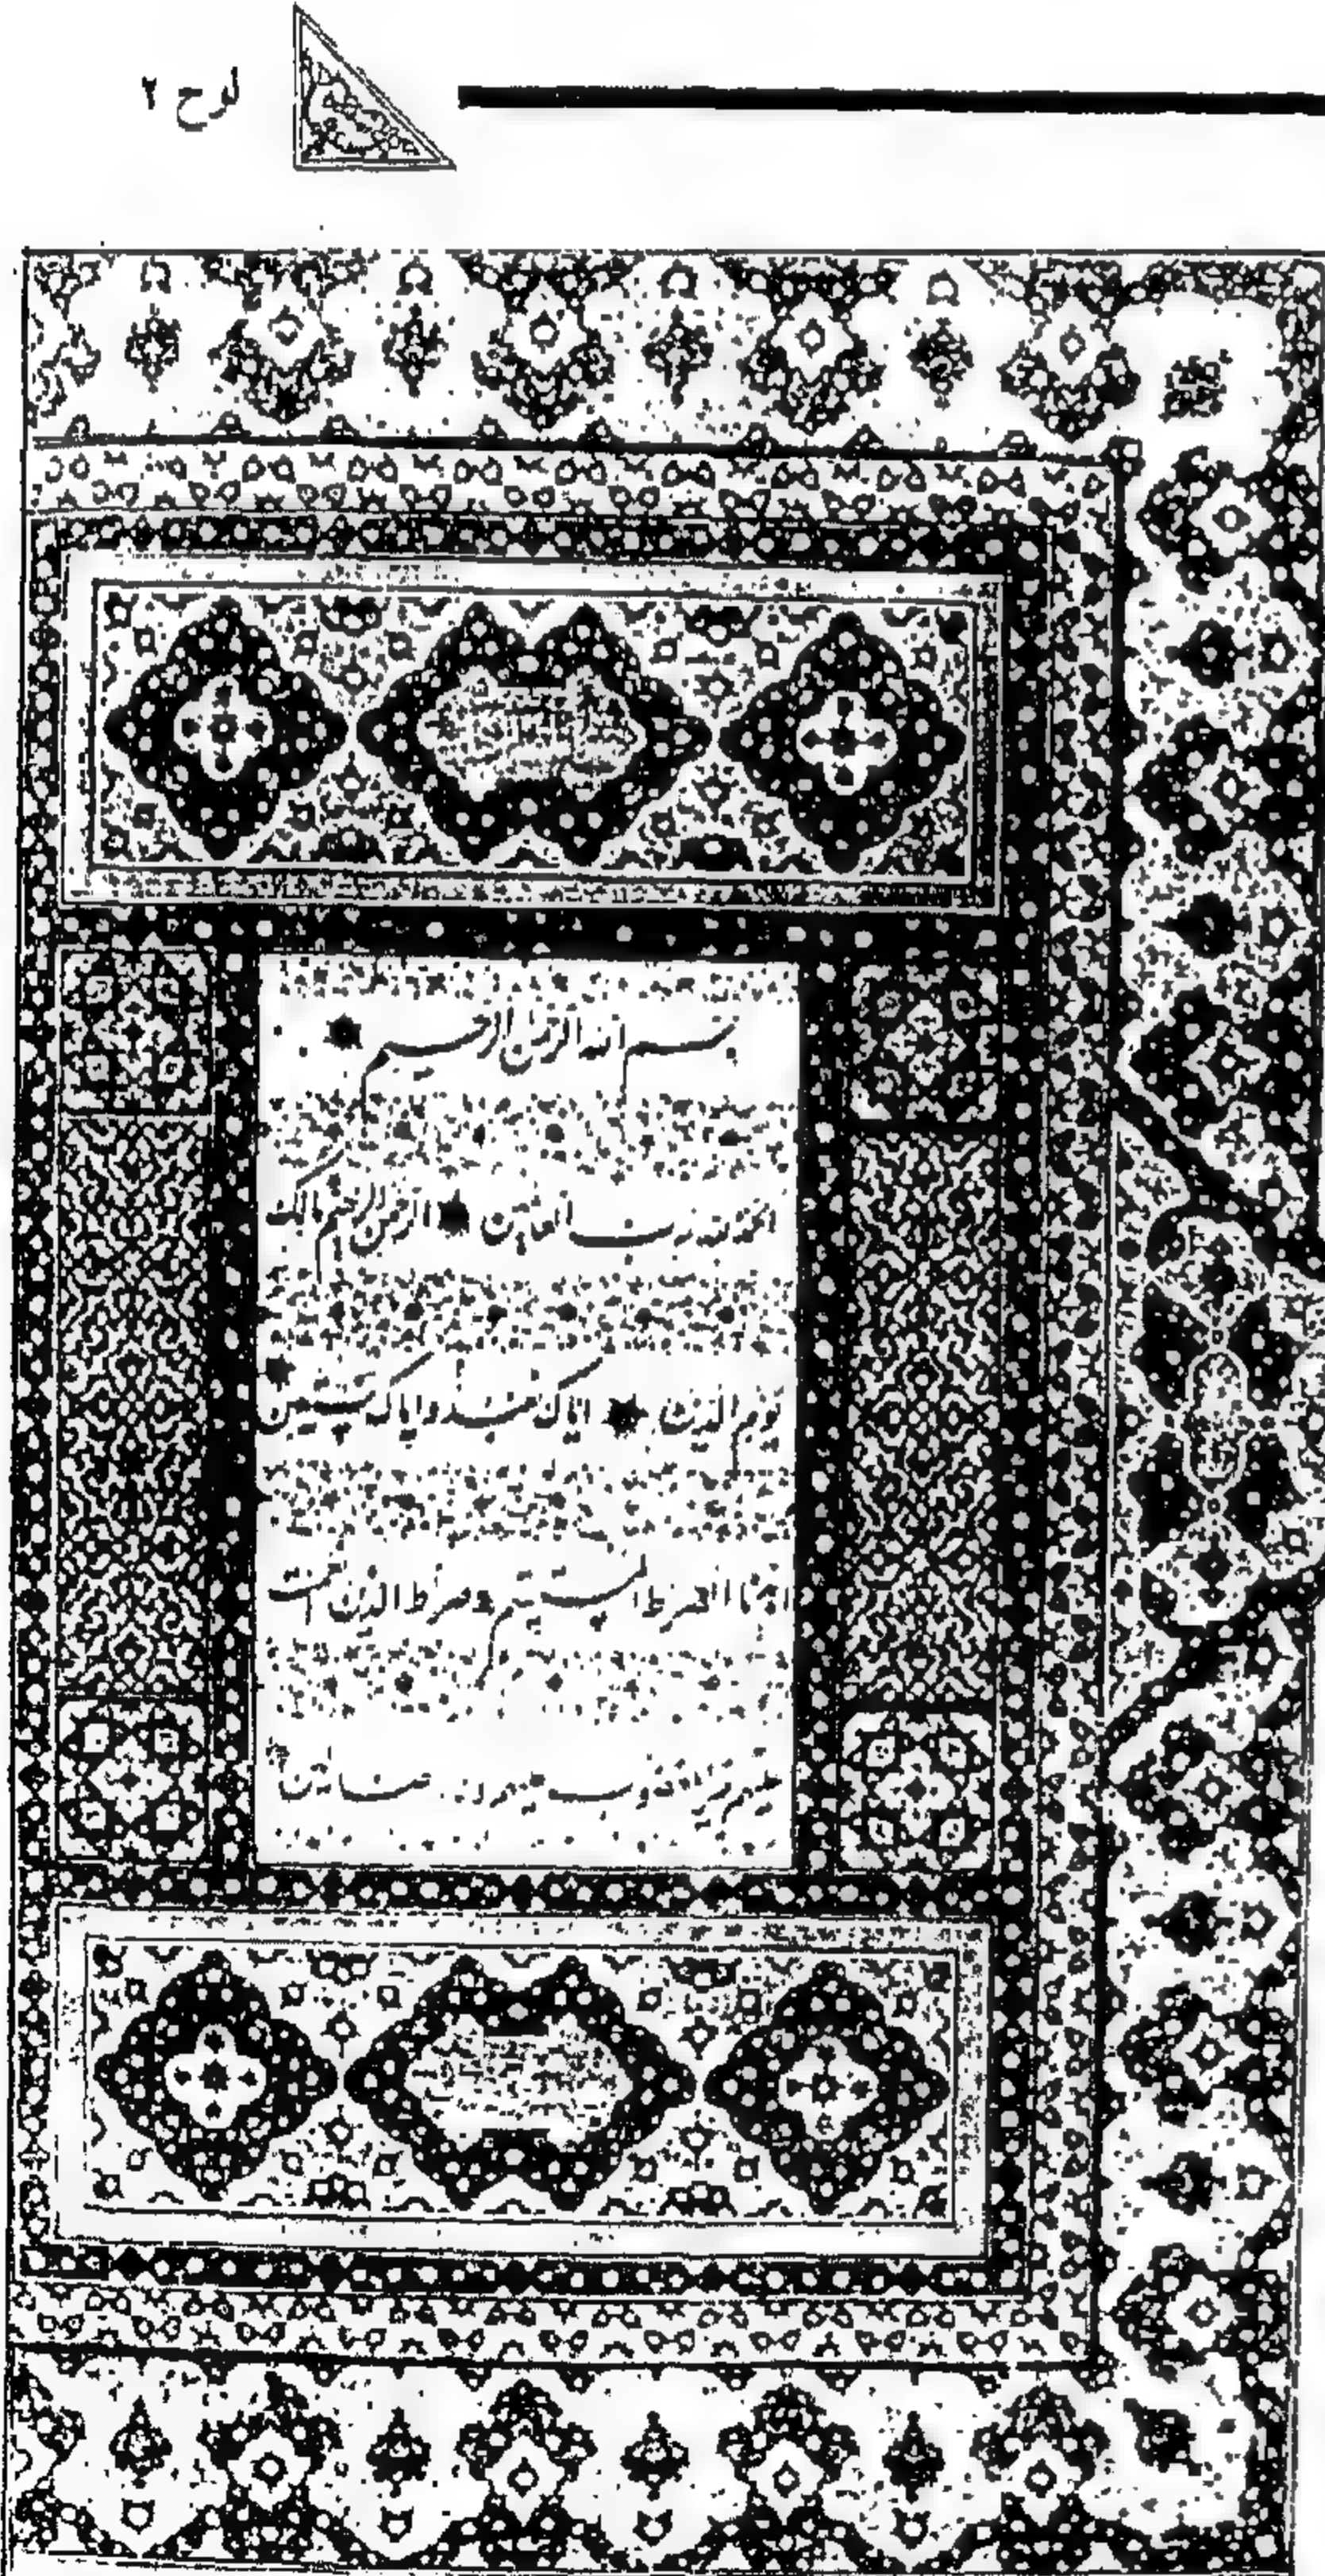 لوح ٢
بسم الله الرحمن الرحيم
الحمد لله رب العالمين الرحمن الرحيم مالك
يوم الدين اياك نعبد واياك نستعين
اهدنا الصراط المستقيم صراط الذين انعمت
عليهم غير المغضوب عليهم ولا الضالين